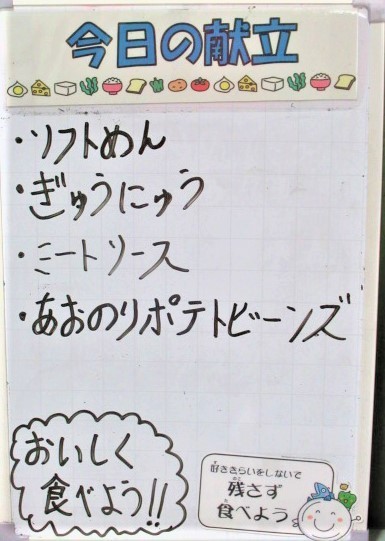 今日の献立
・ソフトめん
・ぎゅうにゅう
・ミートソース
・あおのりポテトビーンズ
おいしく
食べよう!!
好ききらいをしないで
残さず
食べよう。